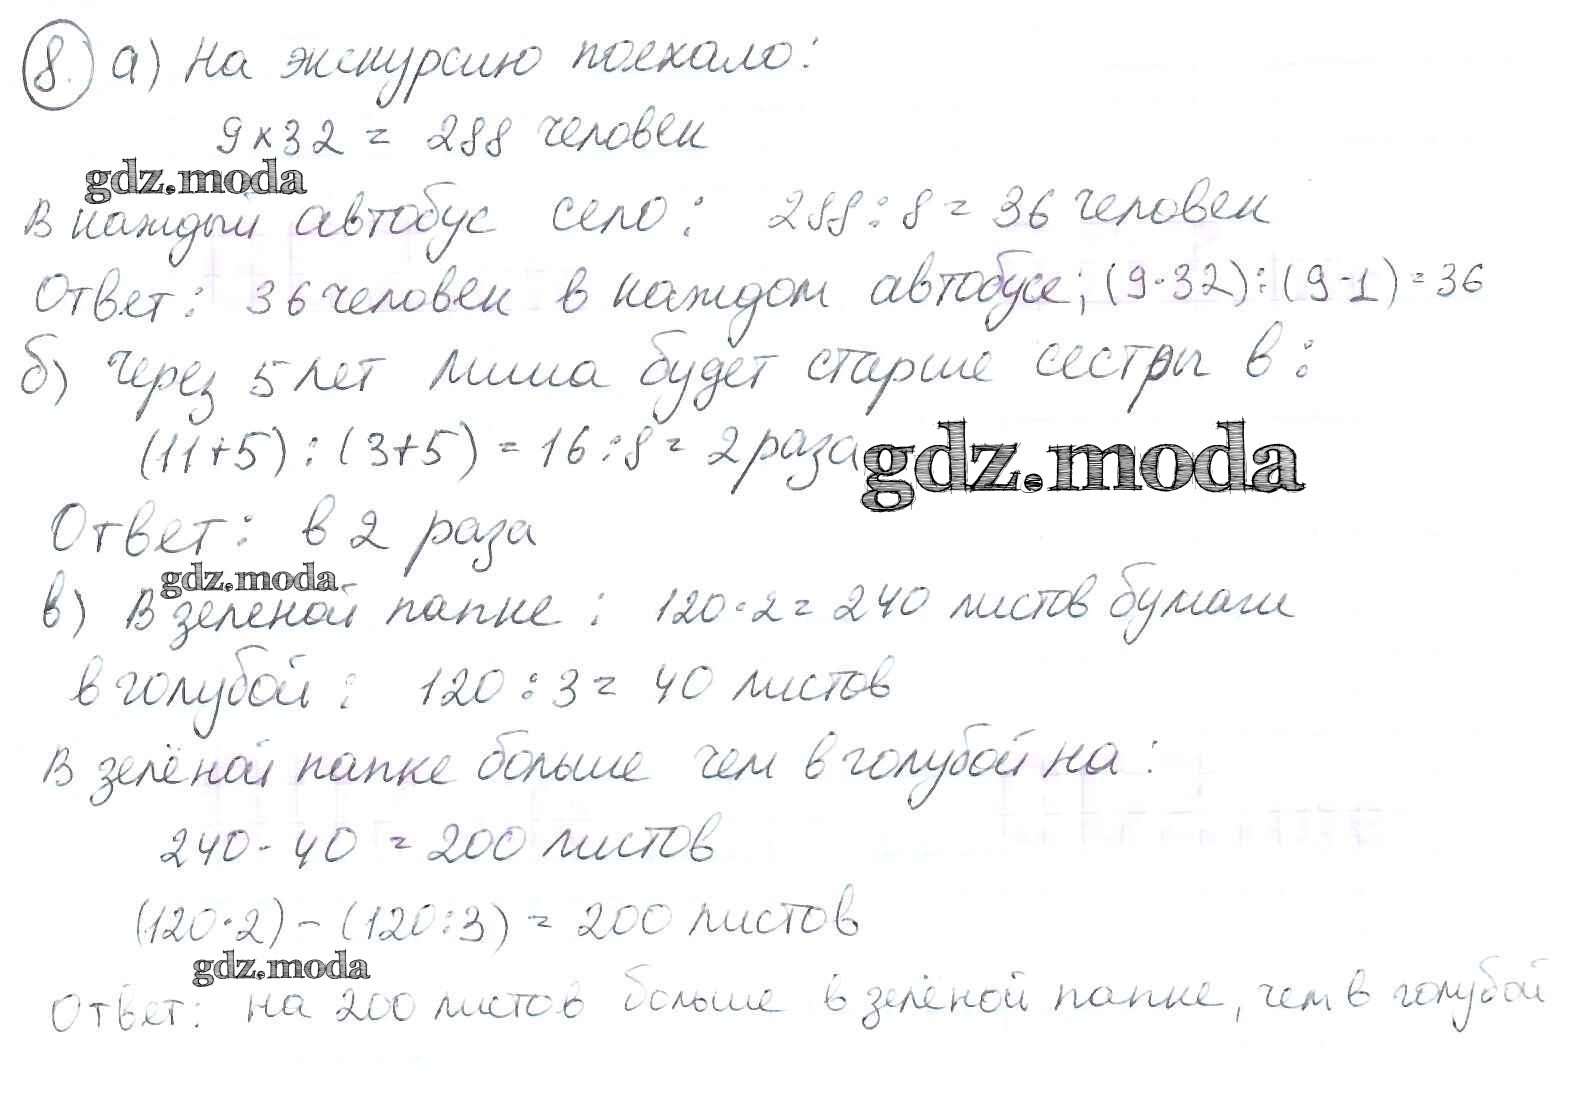 8. а) На экскурсию поехало:
9×32 = 288 человек
gdz.moda
В каждый автобус село: 288:8 = 36 человек
Ответ: 36 человек в каждом автобусе; (9·32):(9-1)=36
б) Через 5 лет Миша будет старше сестры в:
(11+5):(3+5) = 16:8 = 2 раза
gdz.moda
Ответ: в 2 раза
gdz.moda
в) В зеленой папке: 120·2 = 240 листов бумаги
в голубой: 120:3 = 40 листов
В зелёной папке больше чем в голубой на:
240 - 40 = 200 листов
(120·2) - (120:3) = 200 листов
gdz.moda
Ответ: на 200 листов больше в зелёной папке, чем в голубой